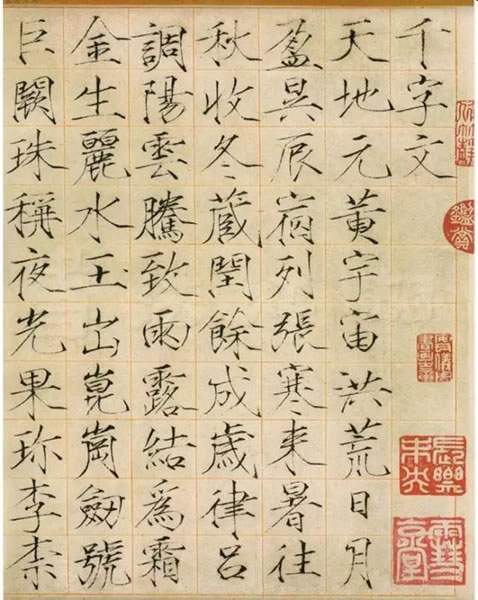 千字文
天地元黃宇宙洪荒日月
盈昃辰宿列張寒来暑往
秋收冬蔵閏餘成歳律呂
調陽雲騰致雨露結爲霜
金生麗水玉出崑崗劔號
巨闕珠稱夜光果珎李柰
鑑賞